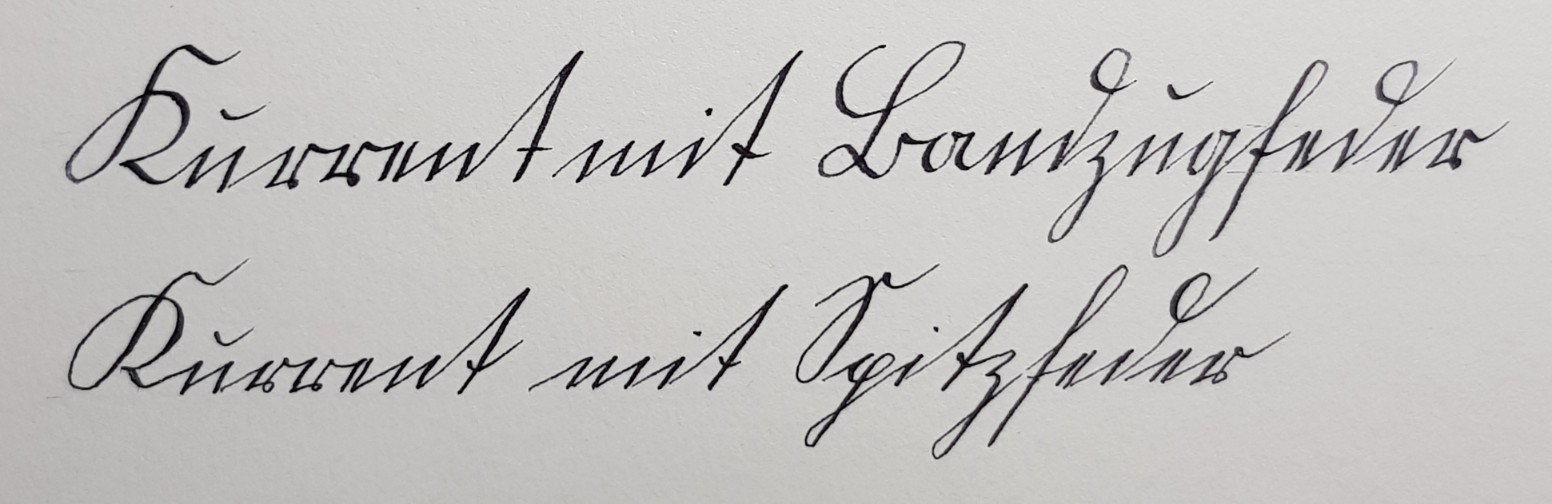 Kurrent mit Bandzugfeder
Kurrent mit Spitzfeder